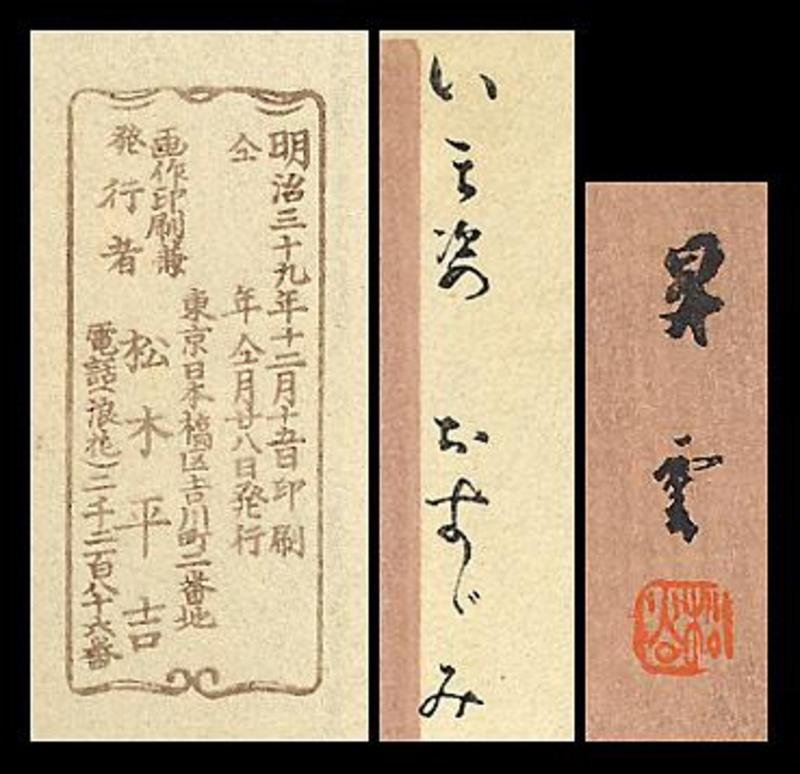 明治三十九年十二月十五日印刷
仝年仝月廿八日発行
東京日本橋区吉川町二番地
画作印刷兼
発行者 松木平吉
電話(浪花)二千二百八十六番
いま姿 おさなじみ
昇雲
松谷